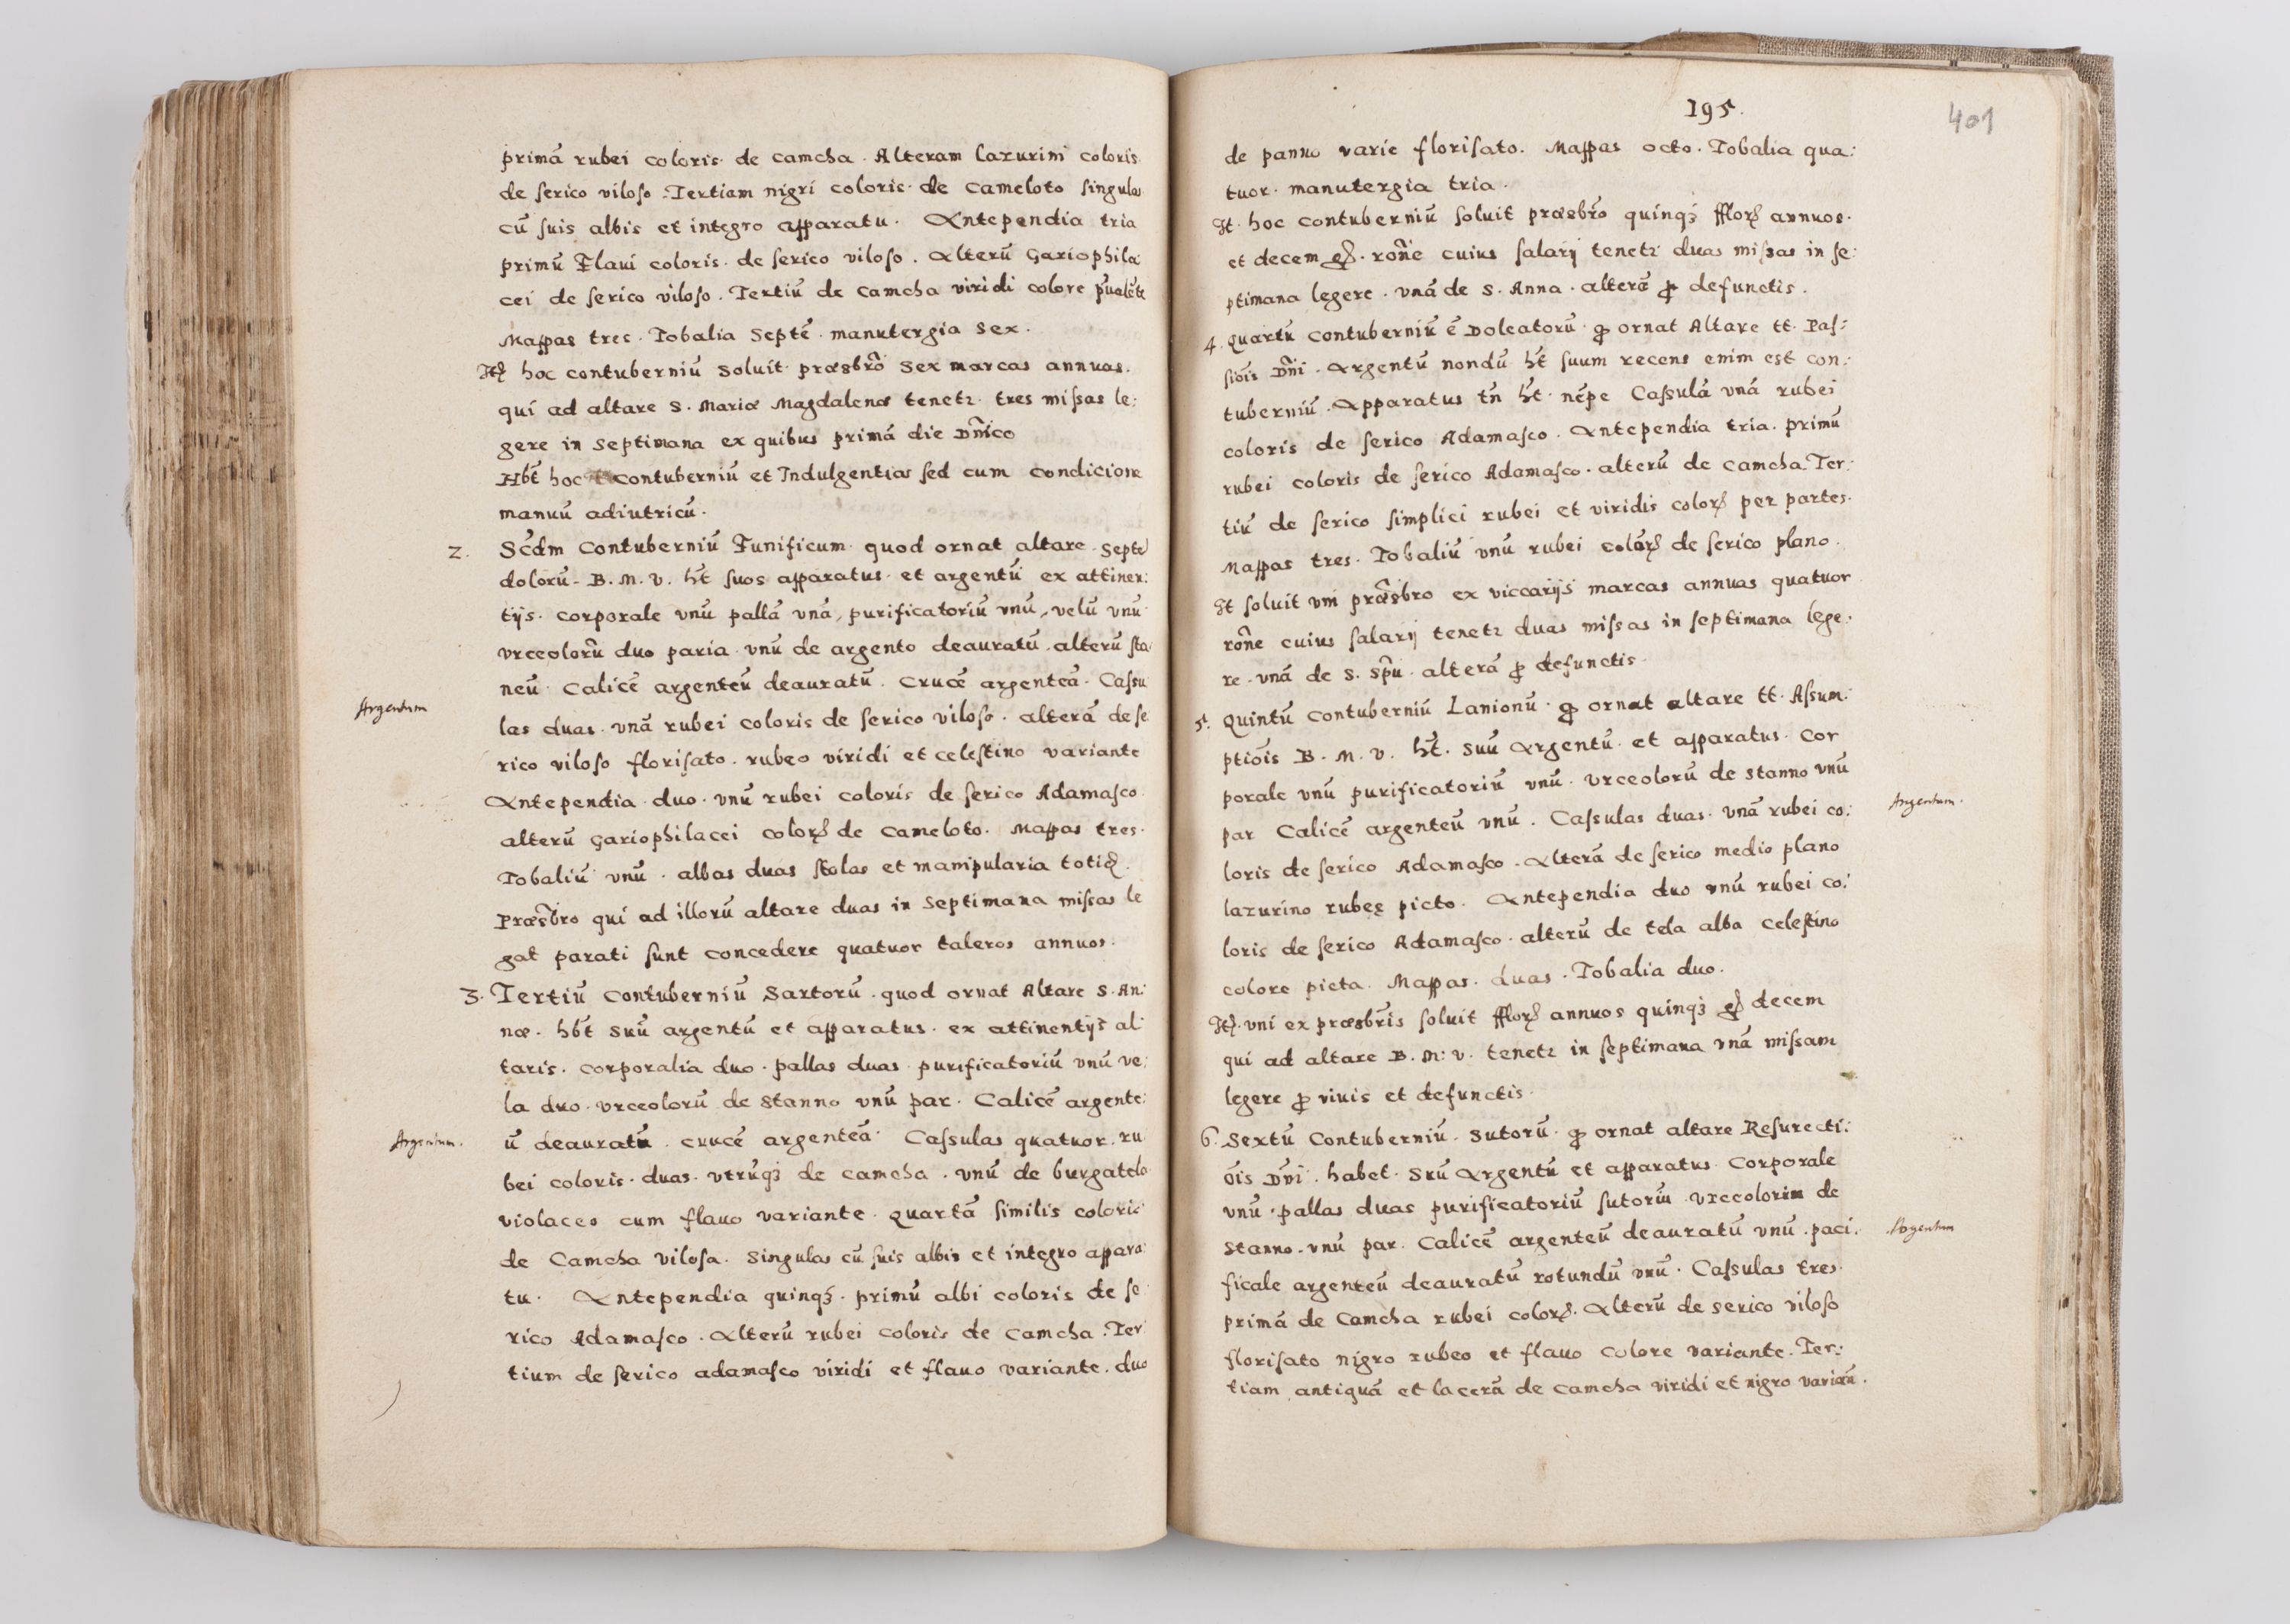 primā rubei coloris de camcha. Alteram lazurini coloris
de serico viloso. Tertiam nigri coloris de Cameloto singulas
cū suis albis et integro apparatu. Antependia tria
primū Flavi coloris de serico viloso. Alterū Gariophila
cei de serico viloso. Tertiū de Camcha viridi colore
Mappas tres. Tobalia Septē. manutergia Sex.
hoc contuberniū soluit præsbr̃o Sex marcas annuas.
qui ad altare S. Mariæ Magdalenæ tenetr tres missas le:
gere in Septimana ex quibus primā die Dñico
Hbt̄ hoc Contuberniū et Indulgentias sed cum condicione
manuū adiutricū.
2. Scdm Contuberniū Funificum quod ornat altare Septē
dolorū B. M. V. ht̄ suos apparatus et argentū ex attinen:
tijs. Corporale vnū pallā vnā, purificatoriū vnū, velū vnū
vrceolorū duo paria vnū de argento deauratū, alterū sta
neū. Calicē argenteū deauratū. Crucē argenteā. Casu
Argentum
las duas. vnā rubei coloris de serico viloso. alterā de se
rico viloso florisato. rubeo viridi et celestino variante
Antependia duo. vnū rubei coloris de serico Adamasco
alterū Gariophilacei colorꝭ de Cameloto. Mappas tres.
Tobaliū vnū. albas duas stolas et manipularia totiꝭ.
Præsbr̃o qui ad illorū altare duas in Septimana missas le
gat parati sunt concedere quatuor taleros annuos.
3. Tertiū Contuberniū Sartorū. quod ornat Altare S. An:
næ. hbt̄ suū argentū et apparatus. ex attinentijs al
taris. Corporalia duo. pallas duas purificatoriū vnū ve:
la duo. vrceolorū de Stanno vnū par. Calicē argente:
Argentum.
ū deauratū. crucē argenteā. Casulas quatuor. ru
bei coloris. duas. vtrūqꝫ de camcha. vnū de burgatelo
violaceo cum flauo variante. quartā similis coloris
de Camcha vilosa. Singulas cū suis albis et integro appara:
tu. Antependia quinqꝫ. primū albi coloris de se
rico Adamasco. Alterū rubei coloris de Camcha. Ter
tium de serico adamasco viridi et flauo variante. duo
195.
401
de panno varie florisato. Mappas octo. Tobalia qua:
tuor. manutergia tria.
It. hoc contuberniū soluit præsbr̃o quinqꝫ fflorꝭ annuos.
et decem gꝭ. rone cuius salarij tenetr duas missas in se:
ptimana legere. vnā de S. Anna. alterā ꝓ defunctis.
4. Quartū contuberniū ē Doleatorū ꝙ ornat Altare tt. Pas:
siōis Dñi. Argentū nondū ht̄ suum recens enim est con:
tuberniū. Apparatus tn̄ ht̄. nēpe Casulā vnā rubei
coloris de serico Adamasco. Antependia tria. primū
rubei coloris de serico Adamasco. alterū de camcha. Ter:
tiū de serico simplici rubei et viridis colorꝭ per partes.
Mappas tres. Tobaliū vnū rubei colorꝭ de serico plano.
It soluit vni præsbro ex viccarijs marcas annuas quatuor
rone cuius salarij tenetr duas missas in septimana lege:
re. vnā de S. Spū. alterā ꝓ defunctis.
5. Quintū contuberniū Lanionū. ꝙ ornat altare tt. Assum:
ptiōis B. M. V. ht̄. suū Argentū et apparatus. Cor
porale vnū purificatoriū vnū. vrceolorū de stanno vnū
Argentum.
par Calicē argenteū vnū. Casulas duas. vnā rubei co:
loris de serico Adamasco. Alterā de serico medio plano
lazurino rubeę picto. Antependia duo vnū rubei co:
loris de serico Adamasco. alterū de tela alba celestino
colore picta. Mappas duas. Tobalia duo.
Itꝭ. vni ex præsbr̃is soluit fflorꝭ annuos quinqꝫ gꝭ decem
qui ad altare B. M: V. tenetr in septimana vnā missam
legere ꝓ viuis et defunctis.
6. Sextū Contuberniū. Sutorū. ꝙ ornat altare Resurecti:
ōis Dñi. habet. suū Argentū et apparatus. Corporale
vnū. pallas duas purificatoriū sutoriū. vrceolorum de
Stanno. vnū par. Calicē argenteū deauratū vnū. paci:
Argentum
ficale argenteū deauratū rotundū vnū. Casulas tres.
primā de Camcha rubei colorꝭ. Alterū de serico viloso
florisato nigro rubeo et flauo colore variante. Ter:
tiam antiquā et lacerā de camcha viridi et nigro varian̄.